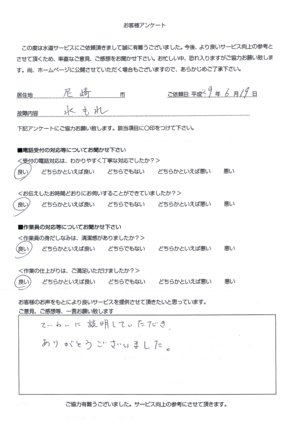 お客様アンケート
この度は水道サービスにご依頼頂きまして誠に有難うございました。今後、より良いサービス向上の参考と
させて頂くため、率直なご意見、ご感想をお聞かせ下さい。お忙しい中、恐れ入りますがご協力お願い致しま
す。尚、ホームページに公開させていただく場合もございますので、あらかじめご了承下さい。
居住地 尼崎 市 ご依頼日 平成29年6月19日
故障内容 水もれ
下記アンケートにご協力お願い致します。該当項目に〇印をつけて下さい。
■電話受付の対応等についてお聞かせ下さい
＜受付の電話対応は、わかりやすく丁寧な対応でしたか？＞
良い どちらかといえば良い どちらでもない どちらかといえば悪い 悪い
＜お伝えしたお時間どおりにお伺いすることができていましたか？＞
良い どちらかといえば良い どちらでもない どちらかといえば悪い 悪い
■作業員の対応等についてお聞かせ下さい
＜作業員の身だしなみは、清潔感がありましたか？＞
良い どちらかといえば良い どちらでもない どちらかといえば悪い 悪い
＜作業の仕上がりは、ご満足いただけましたか？＞
良い どちらかといえば良い どちらでもない どちらかといえば悪い 悪い
お客様のお声をもとにより良いサービスを提供させて頂きたいと思っています。
ご意見、ご感想等、一言お願い致します
てぃねいに説明していただき、
ありがとうございました。
ご協力有難うございました。サービス向上の参考にさせて頂きます。